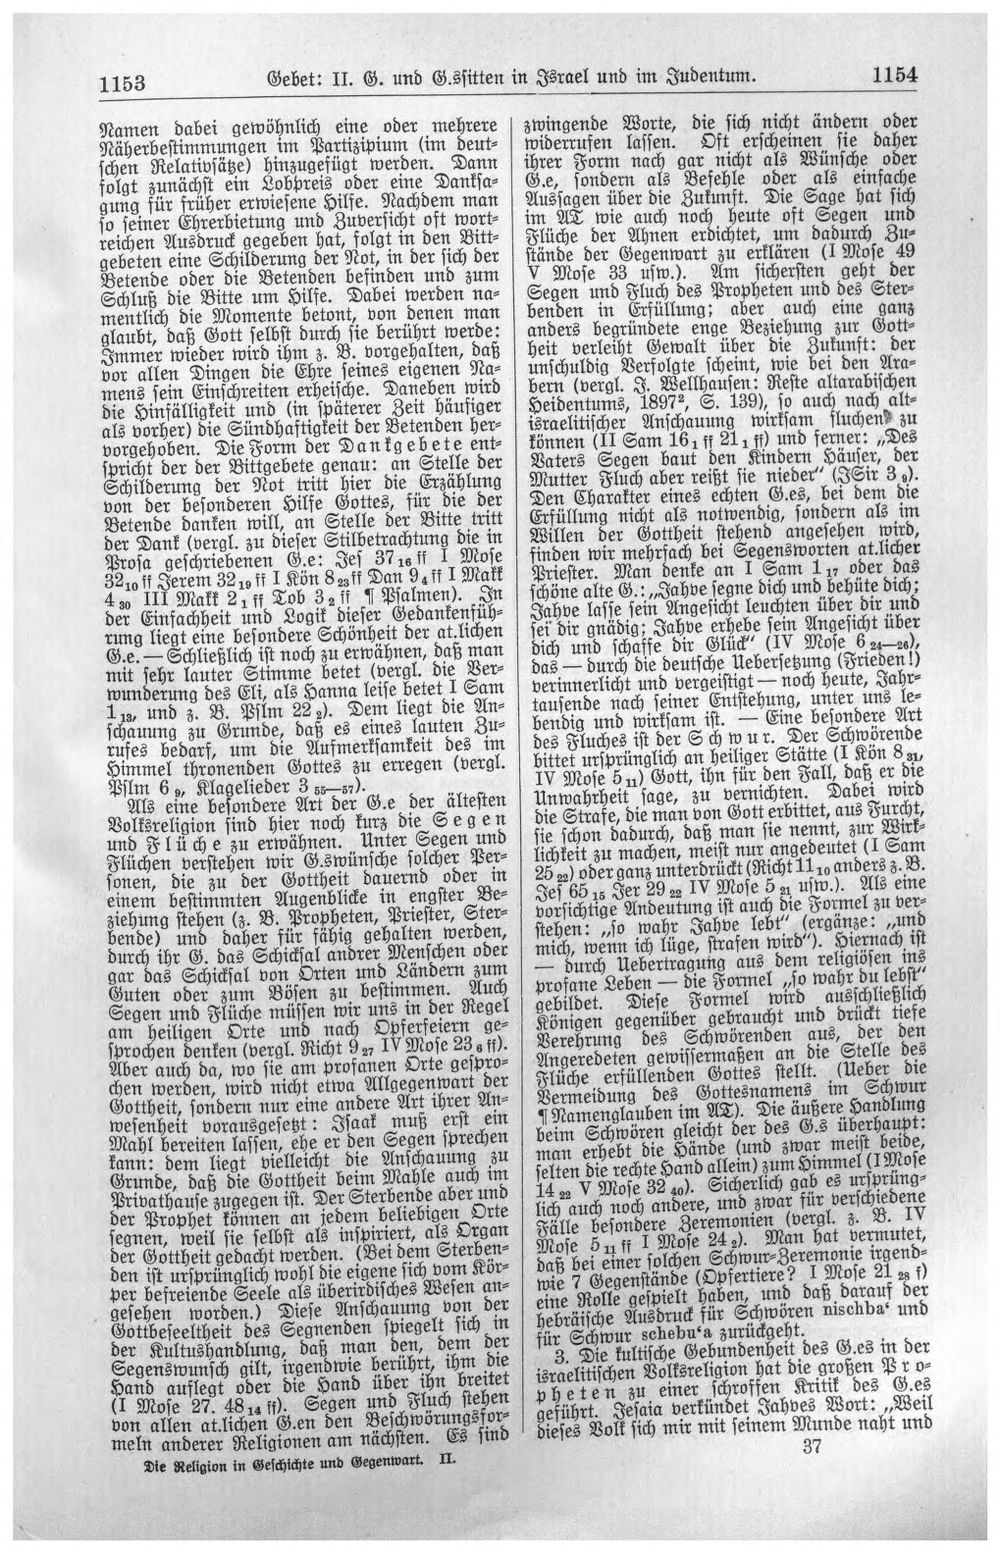 1153
Gebet: II. G. und G.ssitten in Israel und im Judentum.
1154
Namen dabei gewöhnlich eine oder mehrere
Näherbestimmungen im Partizipium (im deut-
schen Relativsätze) hinzugefügt werden. Dann
folgt zunächst ein Lobpreis oder eine Danksa-
gung für früher erwiesene Hilfe. Nachdem man
so seiner Ehrerbietung und Zuversicht oft wort-
reichen Ausdruck gegeben hat, folgt in den Bitt-
gebeten eine Schilderung der Not, in der sich der
Betende oder die Betenden befinden und zum
Schluß die Bitte um Hilfe. Dabei werden na-
mentlich die Momente betont, von denen man
glaubt, daß Gott selbst durch sie berührt werde:
Immer wieder wird ihm z. B. vorgehalten, daß
vor allen Dingen die Ehre seines eigenen Na-
mens sein Einschreiten erheische. Daneben wird
die Hinfälligkeit und (in späterer Zeit häufiger
als vorher) die Sündhaftigkeit der Betenden her-
vorgehoben. Die Form der Dankgebete ent-
spricht der der Bittgebete genau: an Stelle der
Schilderung der Not tritt hier die Erzählung
von der besonderen Hilfe Gottes, für die der
Betende danken will, an Stelle der Bitte tritt
der Dank (vergl. zu dieser Stilbetrachtung die in
Prosa geschriebenen G.e: Jes 37 16 ff I Mose
32 10 ff Jerem 32 19 ff I Kön 8 23 ff Dan 9 4 ff I Makk
4 30 III Makk 2 1 ff Tob 3 2 ff ¶ Psalmen). In
der Einfachheit und Logik dieser Gedankenfüh-
rung liegt eine besondere Schönheit der at.lichen
G.e. — Schließlich ist noch zu erwähnen, daß man
mit sehr lauter Stimme betet (vergl. die Ver-
wunderung des Eli, als Hanna leise betet I Sam
1 13, und z. B. Pslm 22 2). Dem liegt die An-
schauung zu Grunde, daß es eines lauten Zu-
rufes bedarf, um die Aufmerksamkeit des im
Himmel thronenden Gottes zu erregen (vergl.
Pslm 6 9, Klagelieder 3 55—57).
Als eine besondere Art der G.e der ältesten
Volksreligion sind hier noch kurz die Segen
und Flüche zu erwähnen. Unter Segen und
Flüchen verstehen wir G.swünsche solcher Per-
sonen, die zu der Gottheit dauernd oder in
einem bestimmten Augenblicke in engster Be-
ziehung stehen (z. B. Propheten, Priester, Ster-
bende) und daher für fähig gehalten werden,
durch ihr G. das Schicksal andrer Menschen oder
gar das Schicksal von Orten und Ländern zum
Guten oder zum Bösen zu bestimmen. Auch
Segen und Flüche müssen wir uns in der Regel
am heiligen Orte und nach Opferfeiern ge-
sprochen denken (vergl. Richt 9 27 IV Mose 23 6 ff).
Aber auch da, wo sie am profanen Orte gespro-
chen werden, wird nicht etwa Allgegenwart der
Gottheit, sondern nur eine andere Art ihrer An-
wesenheit vorausgesetzt: Isaak muß erst ein
Mahl bereiten lassen, ehe er den Segen sprechen
kann: dem liegt vielleicht die Anschauung zu
Grunde, daß die Gottheit beim Mahle auch im
Privathause zugegen ist. Der Sterbende aber und
der Prophet können an jedem beliebigen Orte
segnen, weil sie selbst als inspiriert, als Organ
der Gottheit gedacht werden. (Bei dem Sterben-
den ist ursprünglich wohl die eigene sich vom Kör-
per befreiende Seele als überirdisches Wesen an-
gesehen worden.) Diese Anschauung von der
Gottbeseeltheit des Segnenden spiegelt sich in
der Kultushandlung, daß man den, dem der
Segenswunsch gilt, irgendwie berührt, ihm die
Hand auflegt oder die Hand über ihn breitet
(I Mose 27. 48 14 ff). Segen und Fluch stehen
von allen at.lichen G.en den Beschwörungsfor-
meln anderer Religionen am nächsten. Es sind
Die Religion in Geschichte und Gegenwart. II.
zwingende Worte, die sich nicht ändern oder
widerrufen lassen. Oft erscheinen sie daher
ihrer Form nach gar nicht als Wünsche oder
G.e, sondern als Befehle oder als einfache
Aussagen über die Zukunft. Die Sage hat sich
im AT wie auch noch heute oft Segen und
Flüche der Ahnen erdichtet, um dadurch Zu-
stände der Gegenwart zu erklären (I Mose 49
V Mose 33 usw.). Am sichersten geht der
Segen und Fluch des Propheten und des Ster-
benden in Erfüllung; aber auch eine ganz
anders begründete enge Beziehung zur Gott-
heit verleiht Gewalt über die Zukunft: der
unschuldig Verfolgte scheint, wie bei den Ara-
bern (vergl. J. Wellhausen: Reste altarabischen
Heidentums, 1897², S. 139), so auch nach alt-
israelitischer Anschauung wirksam fluchen zu
können (II Sam 16 1 ff 21 1 ff) und ferner: „Des
Vaters Segen baut den Kindern Häuser, der
Mutter Fluch aber reißt sie nieder" (JSir 3 9).
Den Charakter eines echten G.es, bei dem die
Erfüllung nicht als notwendig, sondern als im
Willen der Gottheit stehend angesehen wird,
finden wir mehrfach bei Segensworten at.licher
Priester. Man denke an I Sam 1 17 oder das
schöne alte G.: „Jahve segne dich und behüte dich;
Jahve lasse sein Angesicht leuchten über dir und
sei dir gnädig; Jahve erhebe sein Angesicht über
dich und schaffe dir Glück" (IV Mose 6 24—26),
das — durch die deutsche Uebersetzung (Frieden!)
verinnerlicht und vergeistigt — noch heute, Jahr-
tausende nach seiner Entstehung, unter uns le-
bendig und wirksam ist. — Eine besondere Art
des Fluches ist der Schwur. Der Schwörende
bittet ursprünglich an heiliger Stätte (I Kön 8 31,
IV Mose 5 11) Gott, ihn für den Fall, daß er die
Unwahrheit sage, zu vernichten. Dabei wird
die Strafe, die man von Gott erbittet, aus Furcht,
sie schon dadurch, daß man sie nennt, zur Wirk-
lichkeit zu machen, meist nur angedeutet (I Sam
25 22) oder ganz unterdrückt (Richt 11 10 anders z. B.
Jes 65 15 Jer 29 22 IV Mose 5 21 usw.). Als eine
vorsichtige Andeutung ist auch die Formel zu ver-
stehen: „so wahr Jahve lebt" (ergänze: „und
mich, wenn ich lüge, strafen wird"). Hiernach ist
— durch Uebertragung aus dem religiösen ins
profane Leben — die Formel „so wahr du lebst"
gebildet. Diese Formel wird ausschließlich
Königen gegenüber gebraucht und drückt tiefe
Verehrung des Schwörenden aus, der den
Angeredeten gewissermaßen an die Stelle des
Flüche erfüllenden Gottes stellt. (Ueber die
Vermeidung des Gottesnamens im Schwur
¶ Namenglauben im AT). Die äußere Handlung
beim Schwören gleicht der des G.s überhaupt:
man erhebt die Hände (und zwar meist beide,
selten die rechte Hand allein) zum Himmel (I Mose
14 22 V Mose 32 40). Sicherlich gab es ursprüng-
lich auch noch andere, und zwar für verschiedene
Fälle besondere Zeremonien (vergl. z. B. IV
Mose 5 11 ff I Mose 24 2). Man hat vermutet,
daß bei einer solchen Schwur-Zeremonie irgend-
wie 7 Gegenstände (Opfertiere? I Mose 21 28 f)
eine Rolle gespielt haben, und daß darauf der
hebräische Ausdruck für Schwören nischba‘ und
für Schwur schebu‘a zurückgeht.
3. Die kultische Gebundenheit des G.es in der
israelitischen Volksreligion hat die großen Pro-
pheten zu einer schroffen Kritik des G.es
geführt. Jesaia verkündet Jahves Wort: „Weil
dieses Volk sich mir mit seinem Munde naht und
37